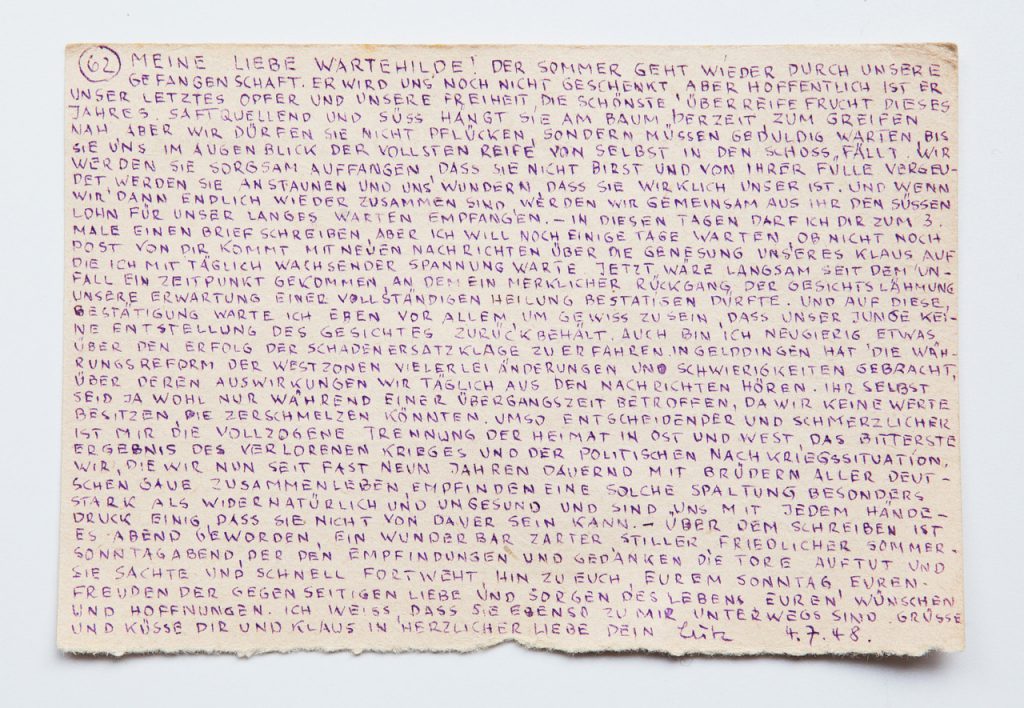 62 MEINE LIEBE WARTEHILDE! DER SOMMER GEHT WIEDER DURCH UNSERE
GEFANGENSCHAFT. ER WIRD UNS NOCH NICHT GESCHENKT, ABER HOFFENTLICH IST ER
UNSER LETZTES OPFER UND UNSERE FREIHEIT DIE SCHÖNSTE ÜBERREIFE FRUCHT DIESES
JAHRES. SAFTQUELLEND UND SÜSS HÄNGT SIE AM BAUM DERZEIT, ZUM GREIFEN
NAH, ABER WIR DÜRFEN SIE NICHT PFLÜCKEN, SONDERN MÜSSEN GEDULDIG WARTEN BIS
SIE UNS IM AUGENBLICK DER VOLLSTEN REIFE VON SELBST IN DEN SCHOSS FÄLLT. WIR
WERDEN SIE SORGSAM AUFFANGEN, DASS SIE NICHT BIRST UND VON IHRER FÜLLE VERGEU-
DET, WERDEN SIE ANSTAUNEN UND UNS WUNDERN, DASS SIE WIRKLICH UNSER IST. UND WENN
WIR DANN ENDLICH WIEDER ZUSAMMEN SIND, WERDEN WIR GEMEINSAM AUS IHR DEN SÜSSEN
LOHN FÜR UNSER LANGES WARTEN EMPFANGEN. – IN DIESEN TAGEN DARF ICH DIR ZUM 3.
MALE EINEN BRIEF SCHREIBEN, ABER ICH WILL NOCH EINIGE TAGE WARTEN, OB NICHT NOCH
POST VON DIR KOMMT MIT NEUEN NACHRICHTEN ÜBER DIE GENESUNG UNSERES KLAUS AUF
DIE ICH MIT TÄGLICH WACHSENDER SPANNUNG WARTE. JETZT WÄRE LANGSAM SEIT DEM UN-
FALL EIN ZEITPUNKT GEKOMMEN, AN DEM EIN MERKLICHER RÜCKGANG DER GESICHTSLÄHMUNG
UNSERE ERWARTUNG EINER VOLLSTÄNDIGEN HEILUNG BESTÄTIGEN DÜRFTE. UND AUF DIESE
BESTÄTIGUNG WARTE ICH EBEN VOR ALLEM UM GEWISS ZU SEIN, DASS UNSER JUNGE KEI-
NE ENTSTELLUNG DES GESICHTES ZURÜCKBEHÄLT. AUCH BIN ICH NEUGIERIG ETWAS
ÜBER DEN ERFOLG DER SCHADENERSATZKLAGE ZU ERFAHREN. IN GELDDINGEN HAT DIE WÄH-
RUNGSREFORM DER WESTZONEN VIELERLEI ÄNDERUNGEN UND SCHWIERIGKEITEN GEBRACHT,
ÜBER DEREN AUSWIRKUNGEN WIR TÄGLICH AUS DEN NACHRICHTEN HÖREN. IHR SELBST
SEID JA WOHL NUR WÄHREND EINER ÜBERGANGSZEIT BETROFFEN, DA WIR KEINE WERTE
BESITZEN, DIE ZERSCHMELZEN KÖNNTEN. UMSO ENTSCHEIDENDER UND SCHMERZLICHER
IST MIR DIE VOLLZOGENE TRENNUNG DER HEIMAT IN OST UND WEST, DAS BITTERSTE
ERGEBNIS DES VERLORENEN KRIEGES UND DER POLITISCHEN NACHKRIEGSSITUATION.
WIR, DIE WIR NUN SEIT FAST NEUN JAHREN DAUERND MIT BRÜDERN ALLER DEUT-
SCHEN GAUE ZUSAMMENLEBEN, EMPFINDEN EINE SOLCHE SPALTUNG BESONDERS
STARK ALS WIDERNATÜRLICH UND UNGESUND UND SIND UNS MIT JEDEM HÄNDE-
DRUCK EINIG, DASS SIE NICHT VON DAUER SEIN KANN. – ÜBER DEM SCHREIBEN IST
ES ABEND GEWORDEN, EIN WUNDERBAR ZARTER STILLER FRIEDLICHER SOMMER-
SONNTAGABEND, DER DEN EMPFINDUNGEN UND GEDANKEN DIE TORE AUFTUT UND
SIE SACHTE UND SCHNELL FORTWEHT, HIN ZU EUCH, EUREM SONNTAG, EUREN
FREUDEN DER GEGENSEITIGEN LIEBE UND SORGEN DES LEBENS EUREN WÜNSCHEN
UND HOFFNUNGEN. ICH WEISS, DASS SIE EBENSO ZU MIR UNTERWEGS SIND. GRÜSSE
UND KÜSSE DIR UND KLAUS IN HERZLICHER LIEBE DEIN Lutz 4.7.48.